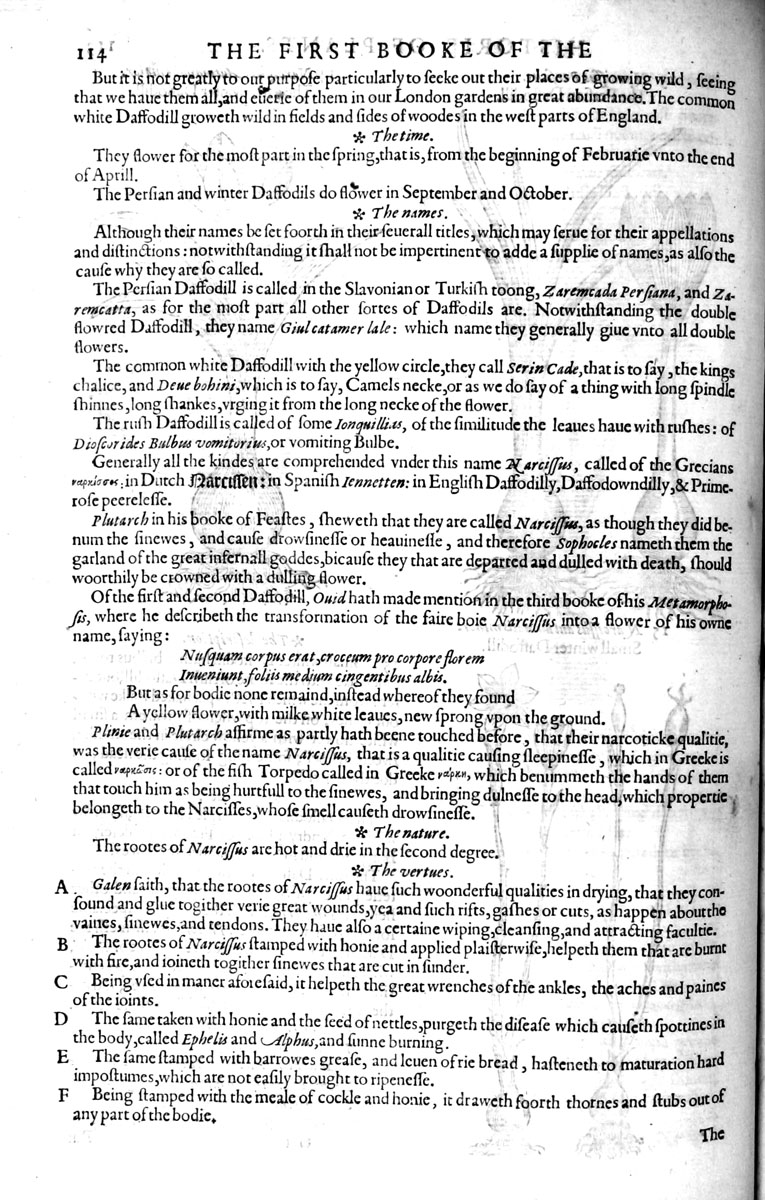 114 THE FIRST BOOKE OF THE
But it is not greatly to our purpose particularly to seeke out their places of growing wild, seeing
that we haue them all, and euerie of them in our London gardens in great abundance. The common
white Daffodill groweth wild in fields and sides of woodes in the west parts of England.
* The time.
They flower for the most part in the spring, that is, from the beginning of Februarie vnto the end
of Aprill.
The Persian and winter Daffodils do flower in September and October.
* The names.
Although their names be set foorth in their seuerall titles, which may serue for their appellations
and distinctions: notwithstanding it shall not be impertinent to adde a supplie of names, as also the
cause why they are so called.
The Persian Daffodill is called in the Slavonian or Turkish toong, Zaremcada Persiana, and Za-
remcatta, as for the most part all other sortes of Daffodils are. Notwithstanding the double
flowred Daffodill, they name Giul catamer lale: which name they generally giue vnto all double
flowers.
The common white Daffodill with the yellow circle, they call Serin Cade, that is to say, the kings
chalice, and Deue bohini, which is to say, Camels necke, or as we do say of a thing with long spindle
shinnes, long shankes, vrging it from the long necke of the flower.
The rush Daffodill is called of some Ionquillias, of the similitude the leaues haue with rushes: of
Dioscorides Bulbus vomitorius, or vomiting Bulbe.
Generally all the kindes are comprehended vnder this name Narcissus, called of the Grecians
ναρκίσσος: in Dutch Narcissen: in Spanish Iennetten: in English Daffodilly, Daffodowndilly, & Prime-
rose peerelesse.
Plutarch in his booke of Feastes, sheweth that they are called Narcissus, as though they did be-
num the sinewes, and cause drowsinesse or heauinesse, and therefore Sophocles nameth them the
garland of the great infernall goddes, bicause they that are departed and dulled with death, should
woorthily be crowned with a dulling flower.
Of the first and second Daffodill, Ouid hath made mention in the third booke of his Metamorpho-
sis, where he describeth the transformation of the faire boie Narcissus into a flower of his owne
name, saying:
Nusquam corpus erat, croceum pro corpore florem
Inueniunt, foliis medium cingentibus albis.
But as for bodie none remaind, instead whereof they found
A yellow flower, with milke white leaues, new sprong vpon the ground.
Plinie and Plutarch affirme as partly hath beene touched before, that their narcoticke qualitie,
was the verie cause of the name Narcissus, that is a qualitie causing sleepinesse, which in Greeke is
called ναρκῶσις: or of the fish Torpedo called in Greeke νάρκη, which benummeth the hands of them
that touch him as being hurtfull to the sinewes, and bringing dulnesse to the head, which propertie
belongeth to the Narcisses, whose smell causeth drowsinesse.
* The nature.
The rootes of Narcissus are hot and drie in the second degree.
* The vertues.
A Galen saith, that the rootes of Narcissus haue such woonderful qualities in drying, that they con-
sound and glue togither verie great wounds, yea and such rifts, gashes or cuts, as happen about the
vaines, sinewes, and tendons. They haue also a certaine wiping, cleansing, and attracting facultie.
B The rootes of Narcissus stamped with honie and applied plaisterwise, helpeth them that are burnt
with fire, and ioineth togither sinewes that are cut in sunder.
C Being vsed in maner aforesaid, it helpeth the great wrenches of the ankles, the aches and paines
of the ioints.
D The same taken with honie and the seed of nettles, purgeth the disease which causeth spottines in
the body, called Ephelis and Alphus, and sunne burning.
E The same stamped with barrowes grease, and leuen of rie bread, hasteneth to maturation hard
impostumes, which are not easily brought to ripenesse.
F Being stamped with the meale of cockle and honie, it draweth foorth thornes and stubs out of
any part of the bodie.
The